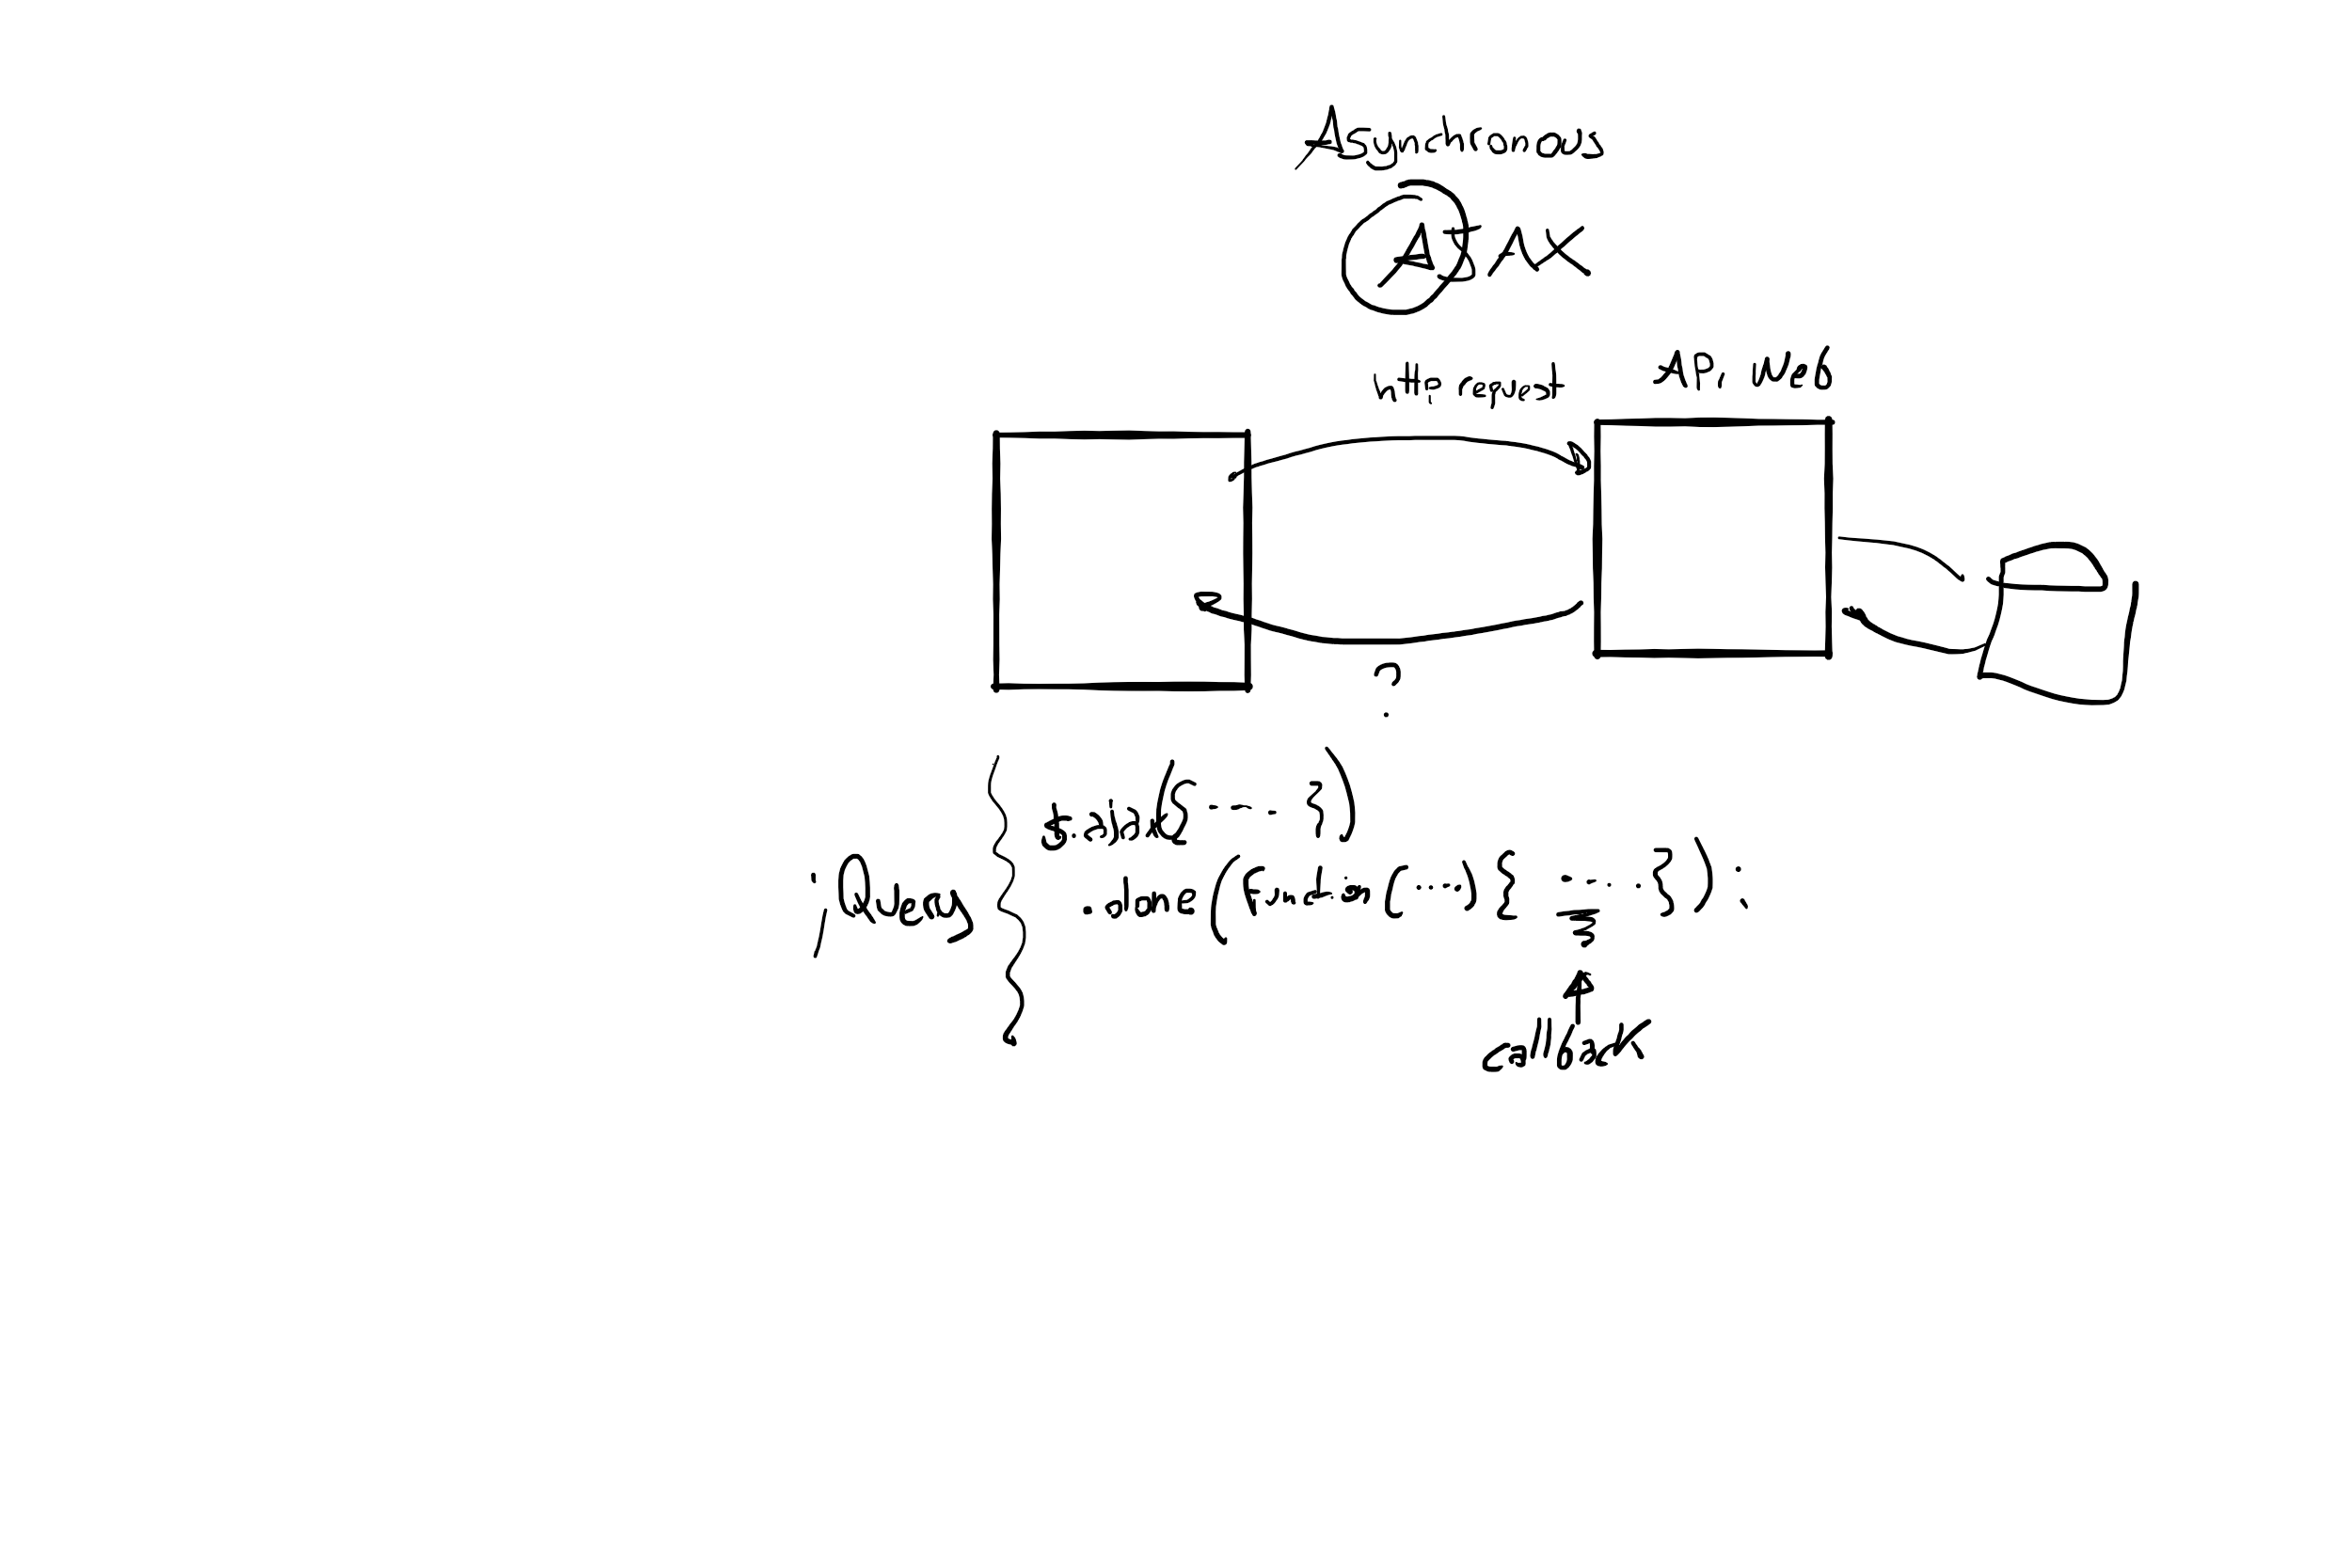 Asynchronous
AJAX
http request
API Web
?
$.ajax({ .... })
jQuery
.done(function(...){ .... });
callback